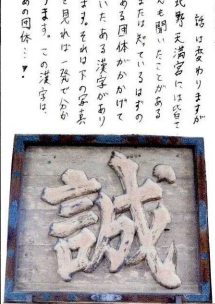 話は変わりますが
北野天満宮には皆さ
んも聞いたことがある
または知っているはずの
ある団体がかかげて
いたある漢字があり
ます。それは下の写真
を見れば一発で分か
ります。この漢字は、
あの団体…▼
誠